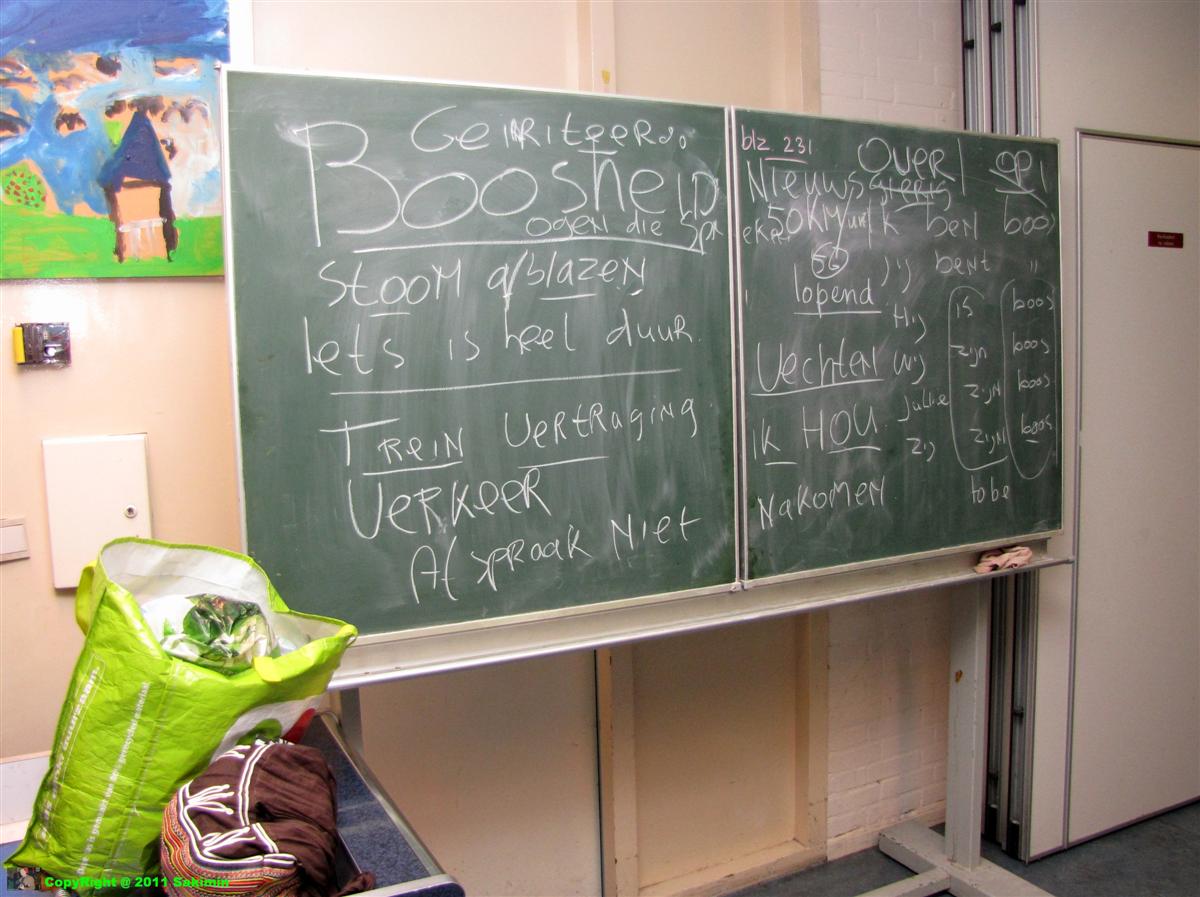 GeiRRiteerd
BoosheiD
ogen die Spr
Stoom afblazen
Iets is heel duur.
Trein Vertraging
Verkeer
Afspraak Niet
blz 231
Over / op!
Nieuwsgierig
50KM/uur Ik ben boos
50 Jij bent "
lopend
Hij is boos
Vechten wij zijn boos
Jullie zijn boos
Ik HOU zij zijn boos
Nakomen
to be
duurzaam
CopyRight @ 2011 Sakimin